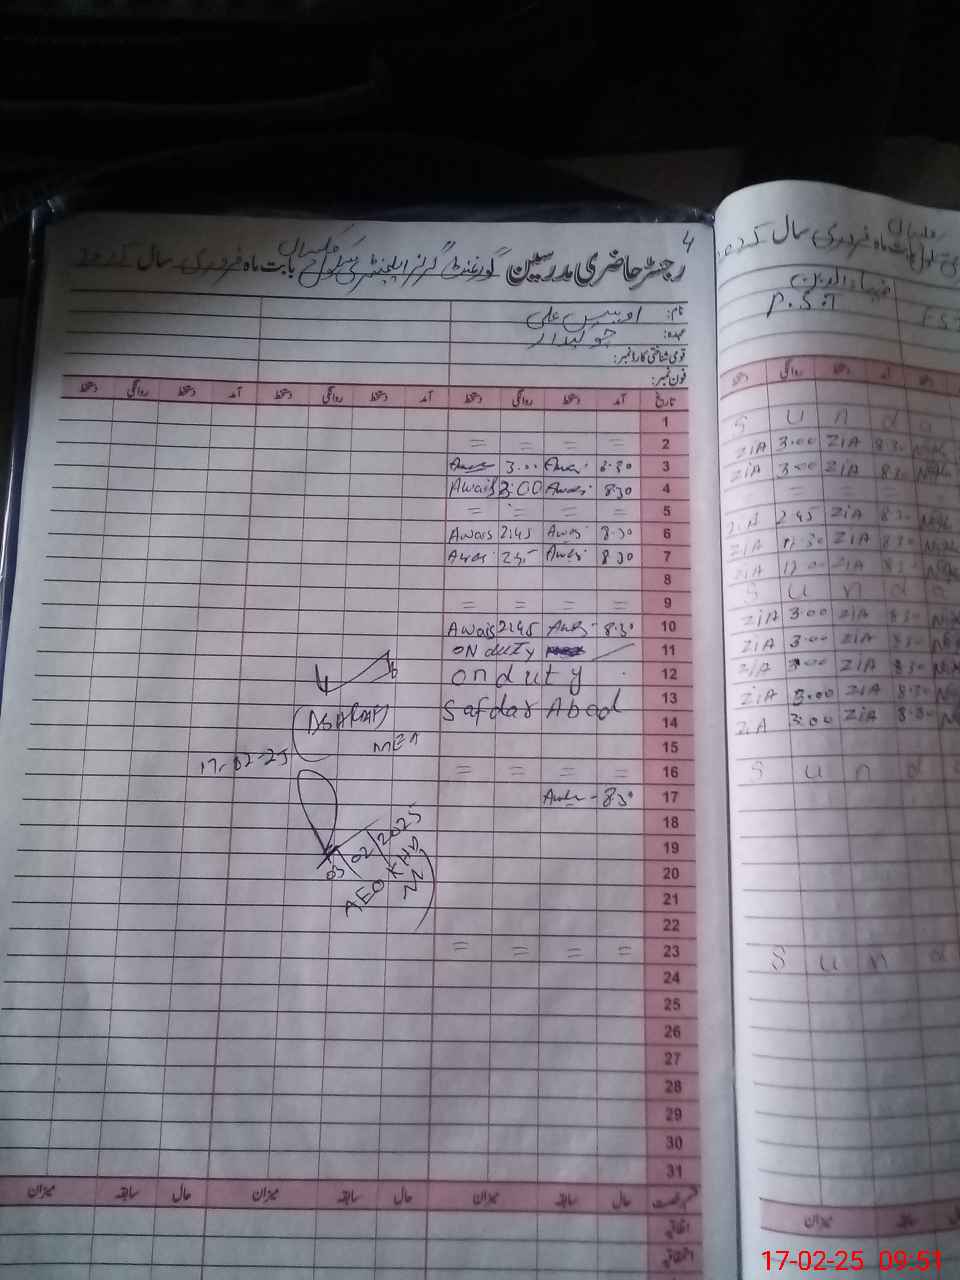 4
رجسٹر حاضری مدرسین گورنمنٹ گرلز ایلیمنٹری سکول بابت ماہ فروری سال 2025
نام: اویس علی
عہدہ: چوکیدار
قومی شناختی کارڈ نمبر:
فون نمبر:
تاریخ آمد دستخط روانگی دستخط آمد دستخط روانگی دستخط آمد دستخط روانگی دستخط
1
= = = = 2
3.00 8.30 3
Awais 3:00 Awais 8.30 4
= = = = 5
Awais 2:45 Awais 8.30 6
8.30 7
8
= = = = 9
Awais 2:45 8.30 10
ON duty 11
on duty 12
13
Safdar Abad 14
MEA
15
17-02-25
= = = = 16
8.30 17
18
03/02/2025
19
AEO KHD
20
21
22
= = = = 23
24
25
26
27
28
29
30
31
حال سابقہ میزان حال سابقہ میزان حال سابقہ میزان
اتفاقیہ
بابت ماہ فروری سال 2025
ضیاء الدین
P.S.T
دستخط روانگی دستخط آمد دستخط
S u n d a
ZiA 3.00 ZiA 8.30
ZiA 3.00 ZiA 8.30
= = = =
ZiA 2.45 ZiA 8.30
ZiA 11.30 ZiA 8.30
ZiA 12.00 ZiA 8.30
S u n d a
ZiA 3.00 ZiA 8.30
ZiA 3.00 ZiA 8.30
ZiA 3.00 ZiA 8.30
ZiA 3.00 ZiA 8.30
ZiA 3:00 ZiA 8.30
S u n d
S u n d
میزان سابقہ
17-02-25 09:51